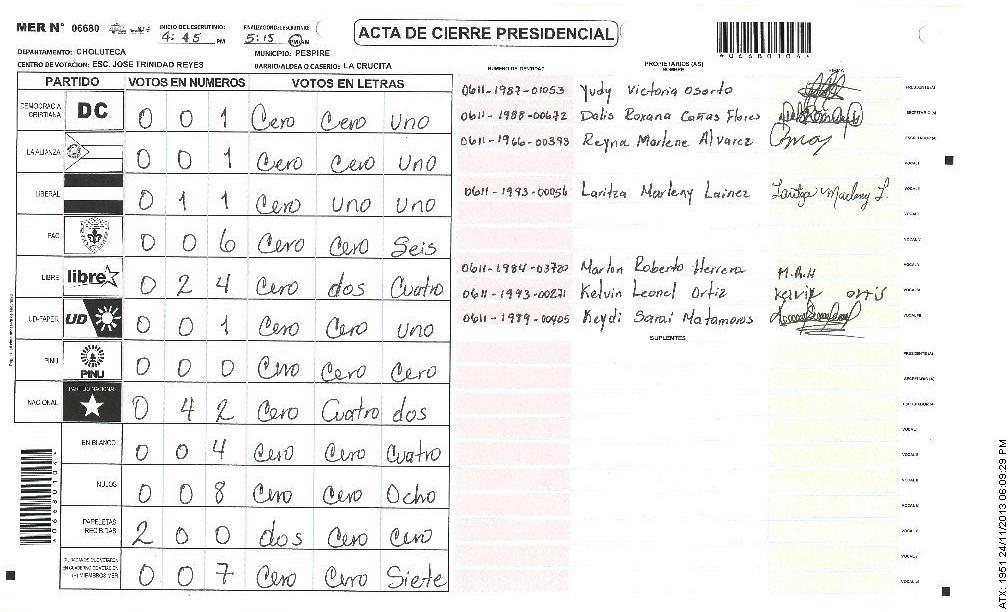 MER N° 06680 INICIO DEL ESCRUTINIO: 4:45 PM FINALIZACION DEL ESCRUTINIO: 5:15 PM/AM
ACTA DE CIERRE PRESIDENCIAL
*06680104*
DEPARTAMENTO: CHOLUTECA MUNICIPIO: PESPIRE
CENTRO DE VOTACION: ESC. JOSE TRINIDAD REYES BARRIO/ALDEA O CASERIO: LA CRUCITA
PARTIDO VOTOS EN NUMEROS VOTOS EN LETRAS
DEMOCRACIA CRISTIANA DC 0 0 1 Cero Cero Uno
LA ALIANZA 0 0 1 Cero Cero Uno
LIBERAL 0 1 1 Cero Uno Uno
PAC 0 0 6 Cero Cero Seis
LIBRE libre 0 2 4 Cero dos Cuatro
UD-FAPER UD 0 0 1 Cero Cero uno
PINU PINU 0 0 0 Cero Cero Cero
NACIONAL PARTIDO NACIONAL 0 4 2 Cero Cuatro dos
EN BLANCO 0 0 4 Cero Cero Cuatro
NULOS 0 0 8 Cero Cero Ocho
PAPELETAS RECIBIDAS 2 0 0 dos Cero Cero
0 0 7 Cero Cero Siete
NUMERO DE IDENTIDAD PROPIETARIOS (AS) NOMBRE FIRMA
0611-1987-01053 Yudy Victoria Osorto PRESIDENTE (A)
0611-1988-00672 Dalis Roxana Cañas Flores SECRETARIO (A)
0611-1966-00393 Reyna Marlene Alvarez ESCRUTADOR (A)
VOCAL I
0611-1993-00056 Laritza Marleny Lainez Laritza Marleny L.
0611-1984-03720 Marlon Roberto Herrera M.R.H
0611-1993-00271 Kelvin Leonel Ortiz Kelvin ortis
0611-1989-00405 Keydi Sarai Matamoros
SUPLENTES
PRESIDENTE (A)
SECRETARIO (A)
ESCRUTADOR (A)
VOCAL I
ATX: 1951 24/11/2013 06:09:29 PM